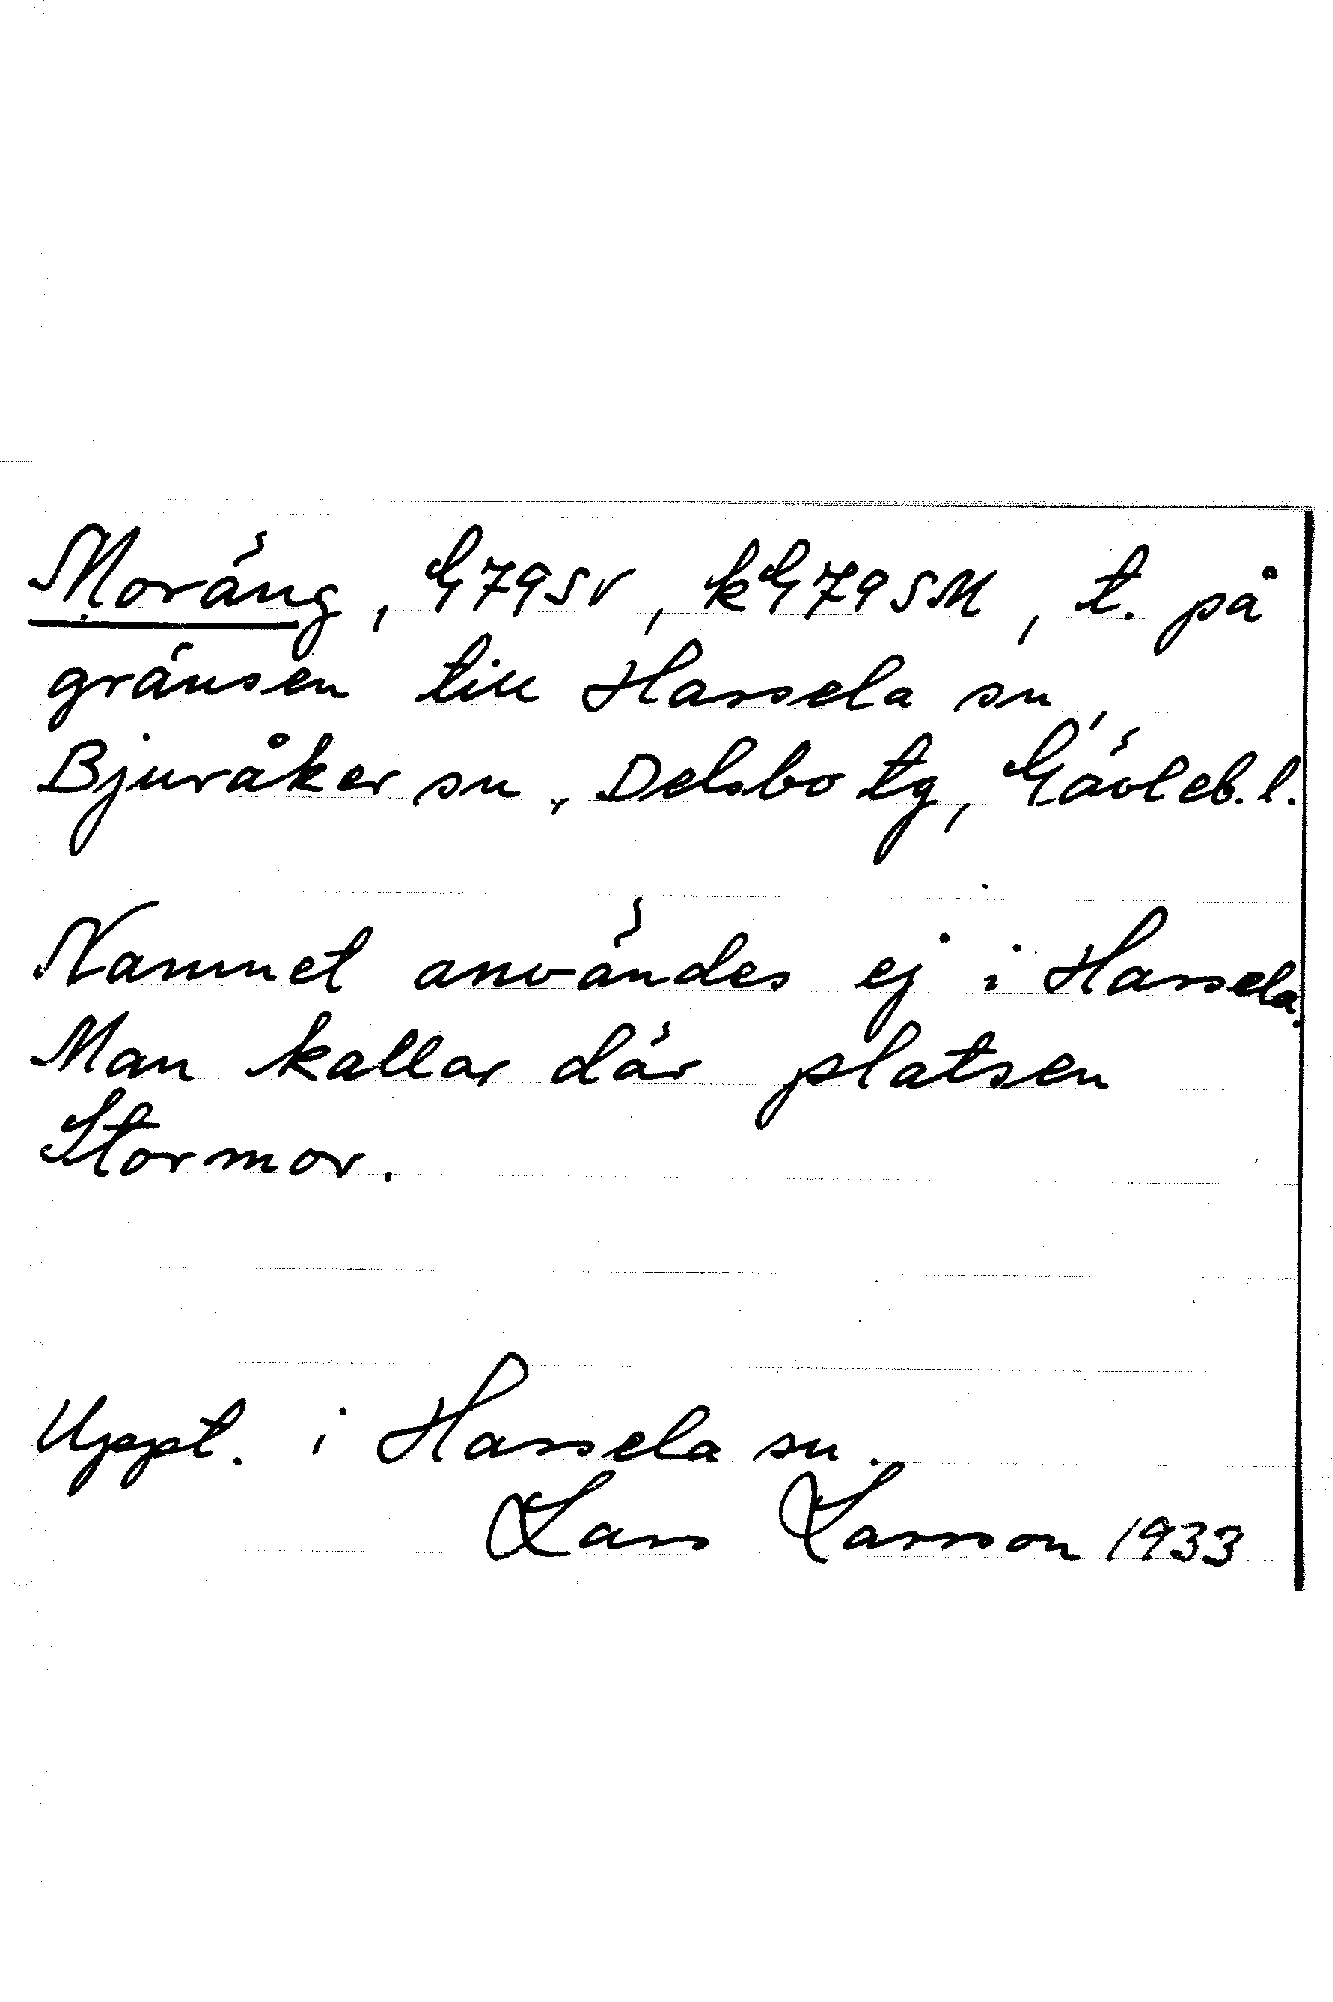 Moräng, G79SV, kG79SM, t. på
gränsen till Hassela sn,
Bjuråker sn, Delsbo tg, Gävleb.l.
Namnet användes ej i Hassela.
Man kallar där platsen
Stormor.
Uppt. i Hassela sn.
Lars Larsson 1933